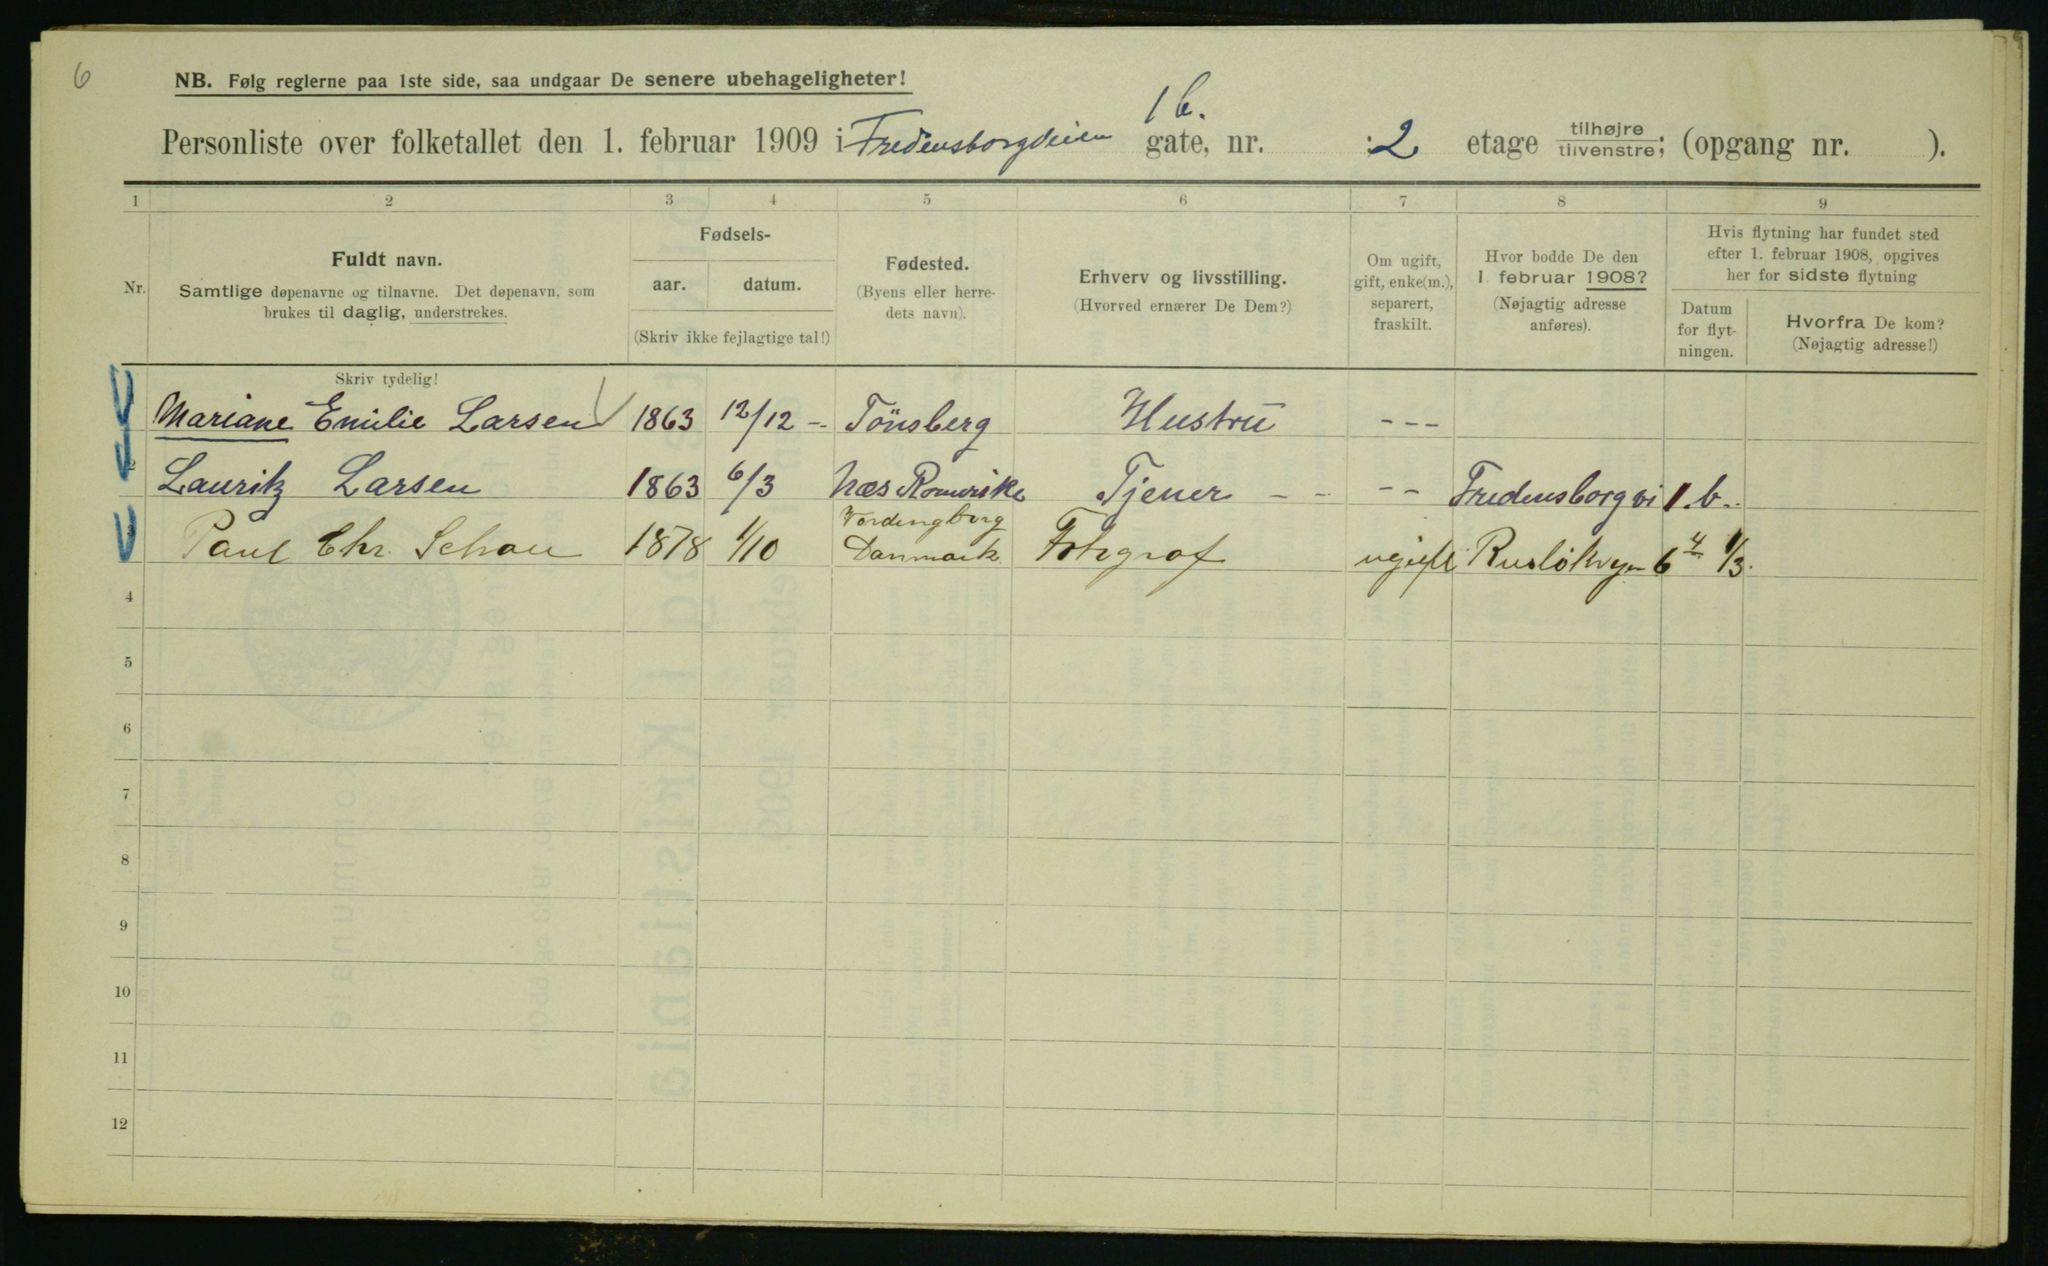 6
NB. Følg reglerne paa 1ste side, saa undgaar De senere ubehageligheter!
1 b.
Personliste over folketallet den 1. februar 1909 i Fredensborgveien gate, nr. : 2 etage tilhøjre tilvenstre; (opgang nr. ).
1 2 3 4 5 6 7 8 9
Nr.
Fuldt navn.
Samtlige døpenavne og tilnavne. Det døpenavn, som
brukes til daglig, understrekes.
Fødsels-
aar. datum.
(Skriv ikke fejlagtige tal!)
Fødested.
(Byens eller herre-
dets navn).
Erhverv og livsstilling.
(Hvorved ernærer De Dem?)
Om ugift,
gift, enke(m.),
separert,
fraskilt.
Hvor bodde De den
1. februar 1908?
(Nøjagtig adresse
anføres).
Hvis flytning har fundet sted
efter 1. februar 1908, opgives
her for sidste flytning
Datum
for flyt-
ningen.
Hvorfra De kom?
(Nøjagtig adresse!)
Skriv tydelig!
Mariane Emilie Larsen 1863 12/12 - Tönsberg Hustru - - -
2 Lauritz Larsen 1863 6/3 Næs Romerike Tjener - - - - Fredensborgvi 1. b.
3 Paul Chr. Schou 1878 1/10 Vordingborg
Danmark Fotograf ugift 6 4 1/3.
4
5
6
7
8
9
10
11
12